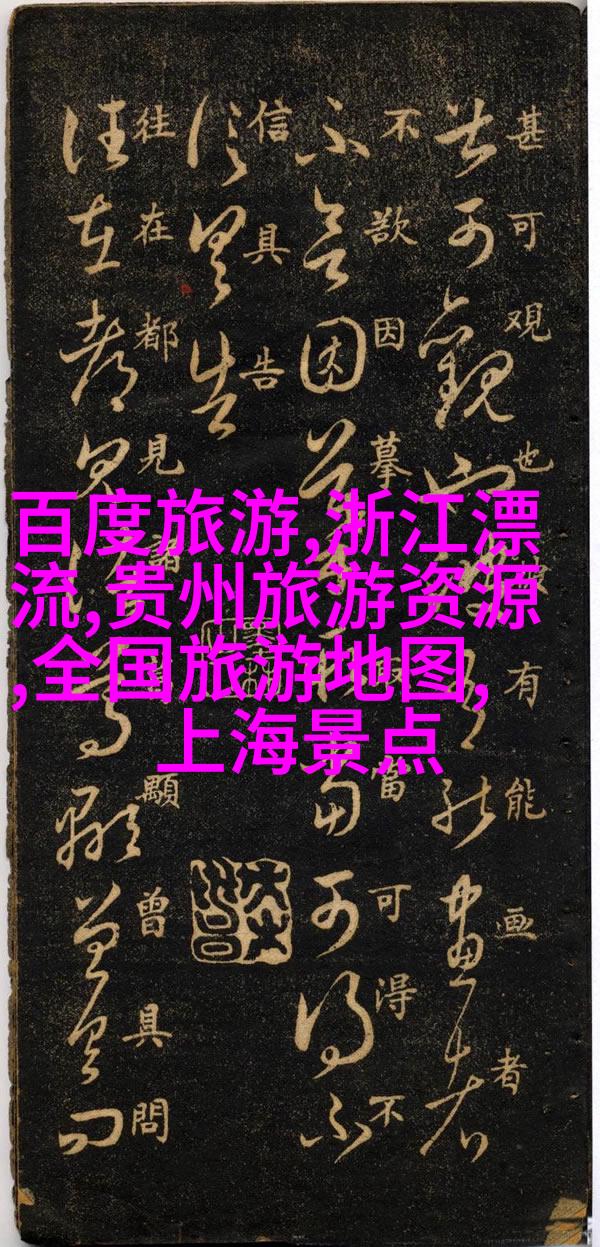 百度旅游,浙江漂
流,贵州旅游资源
,全国旅游地图,
上海景点
甚可观也有能画者
不欲因摹取當可得不
信具告
往在都見諸顯曾具問